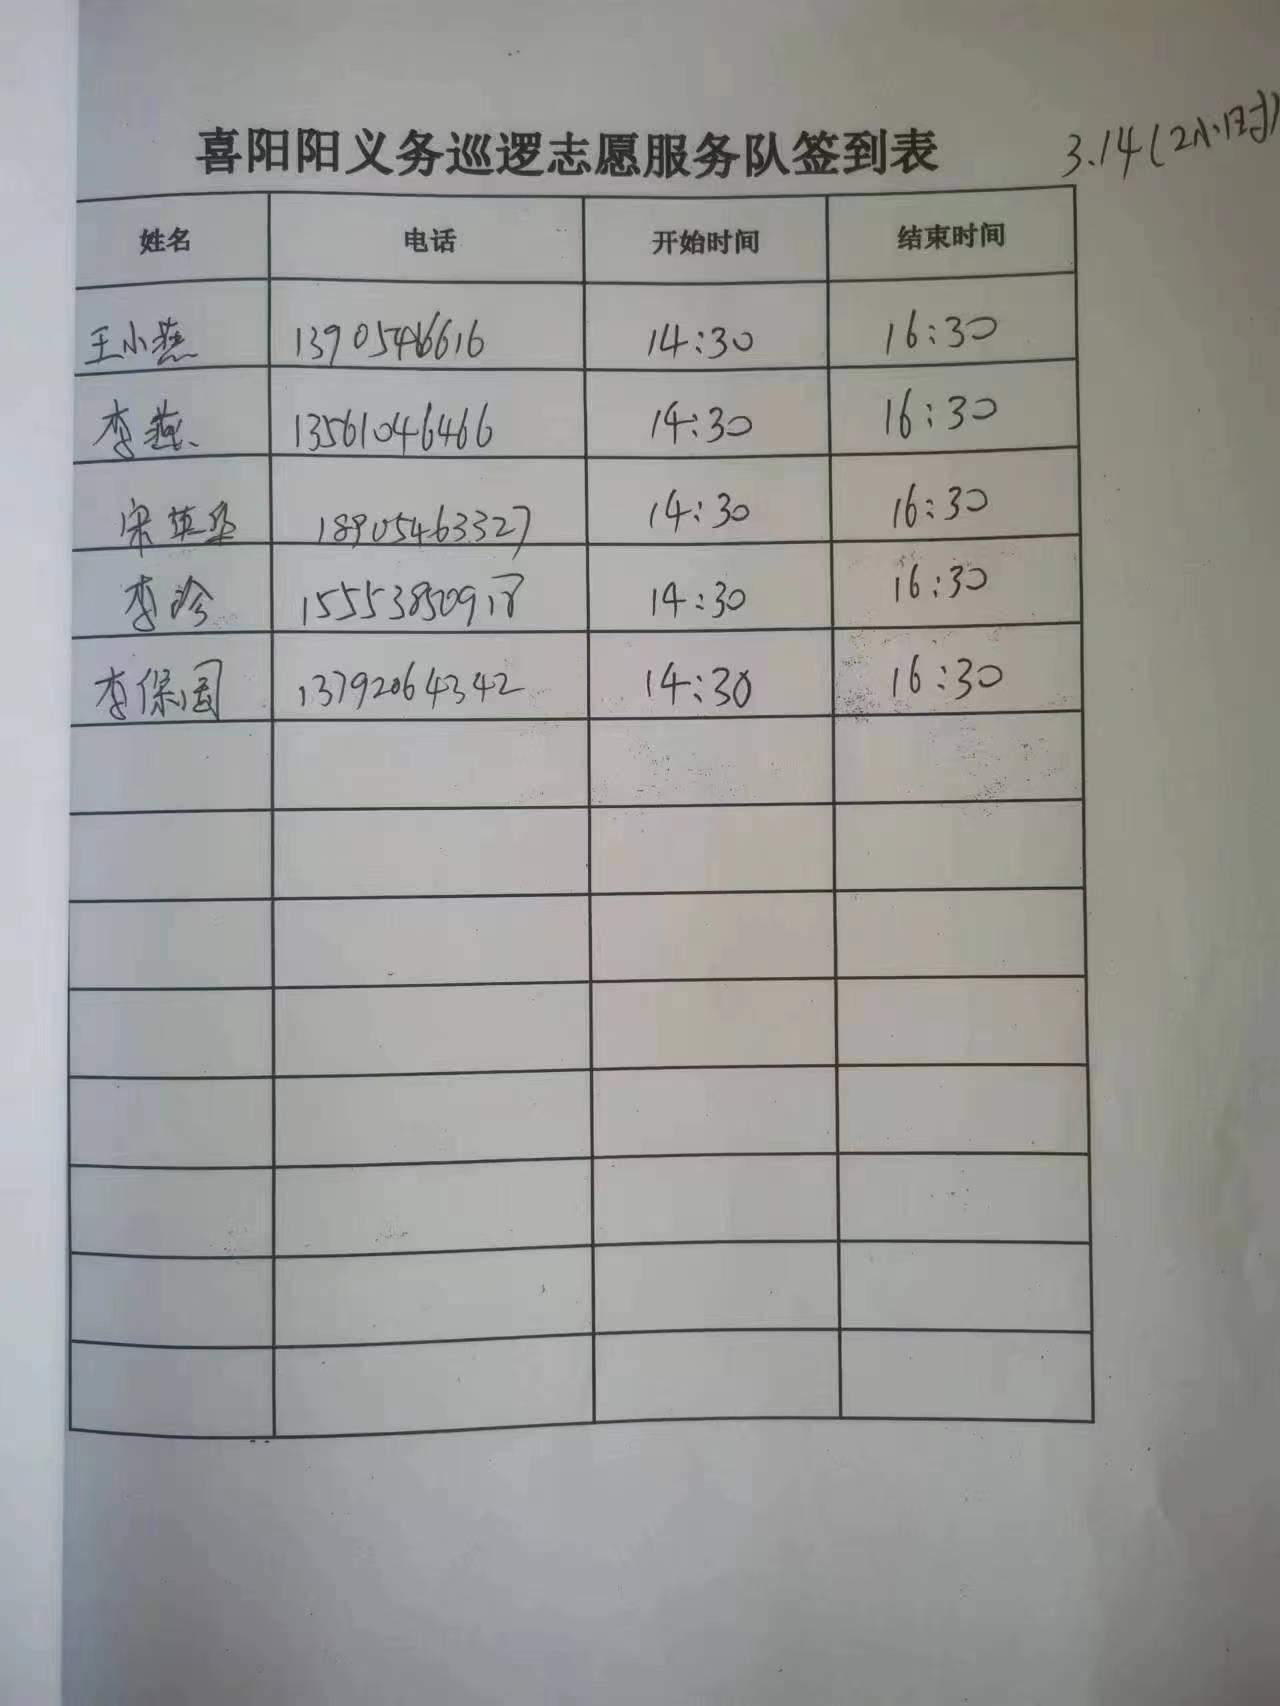 喜阳阳义务巡逻志愿服务队签到表
3.14(2小时)
姓名 电话 开始时间 结束时间
王小燕 13905466616 14:30 16:30
李燕 13561046466 14:30 16:30
宋英华 18905463327 14:30 16:30
李珍 15553850918 14:30 16:30
李保国 13792064342 14:30 16:30